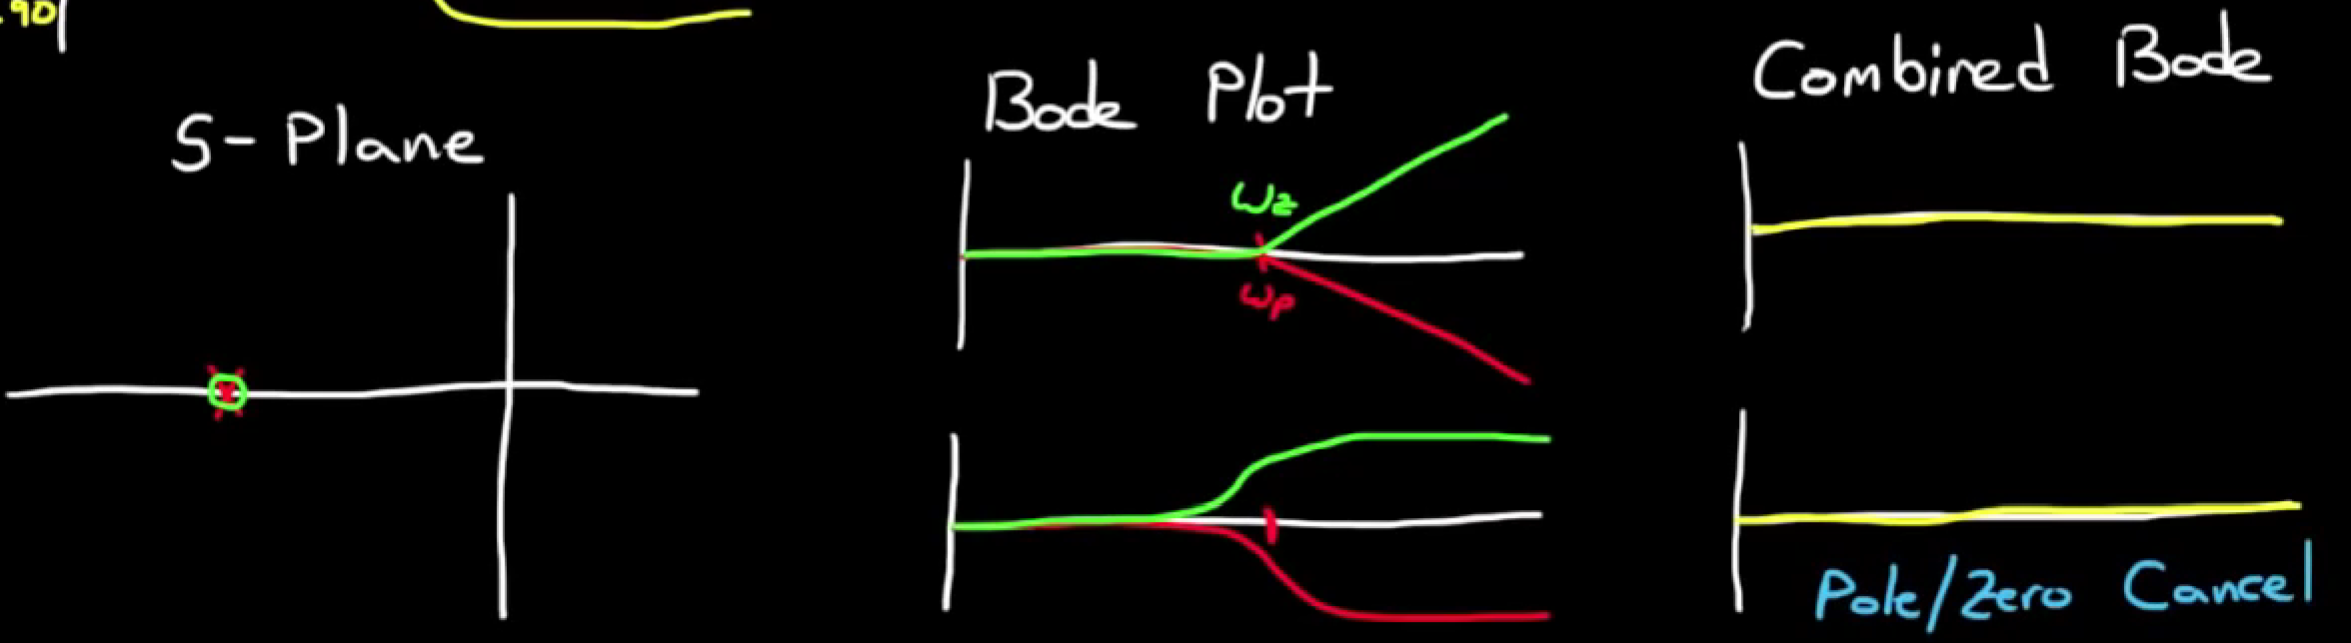 -90
S-Plane
Bode Plot
ωz
ωp
Combired Bode
Pole/Zero Cancel